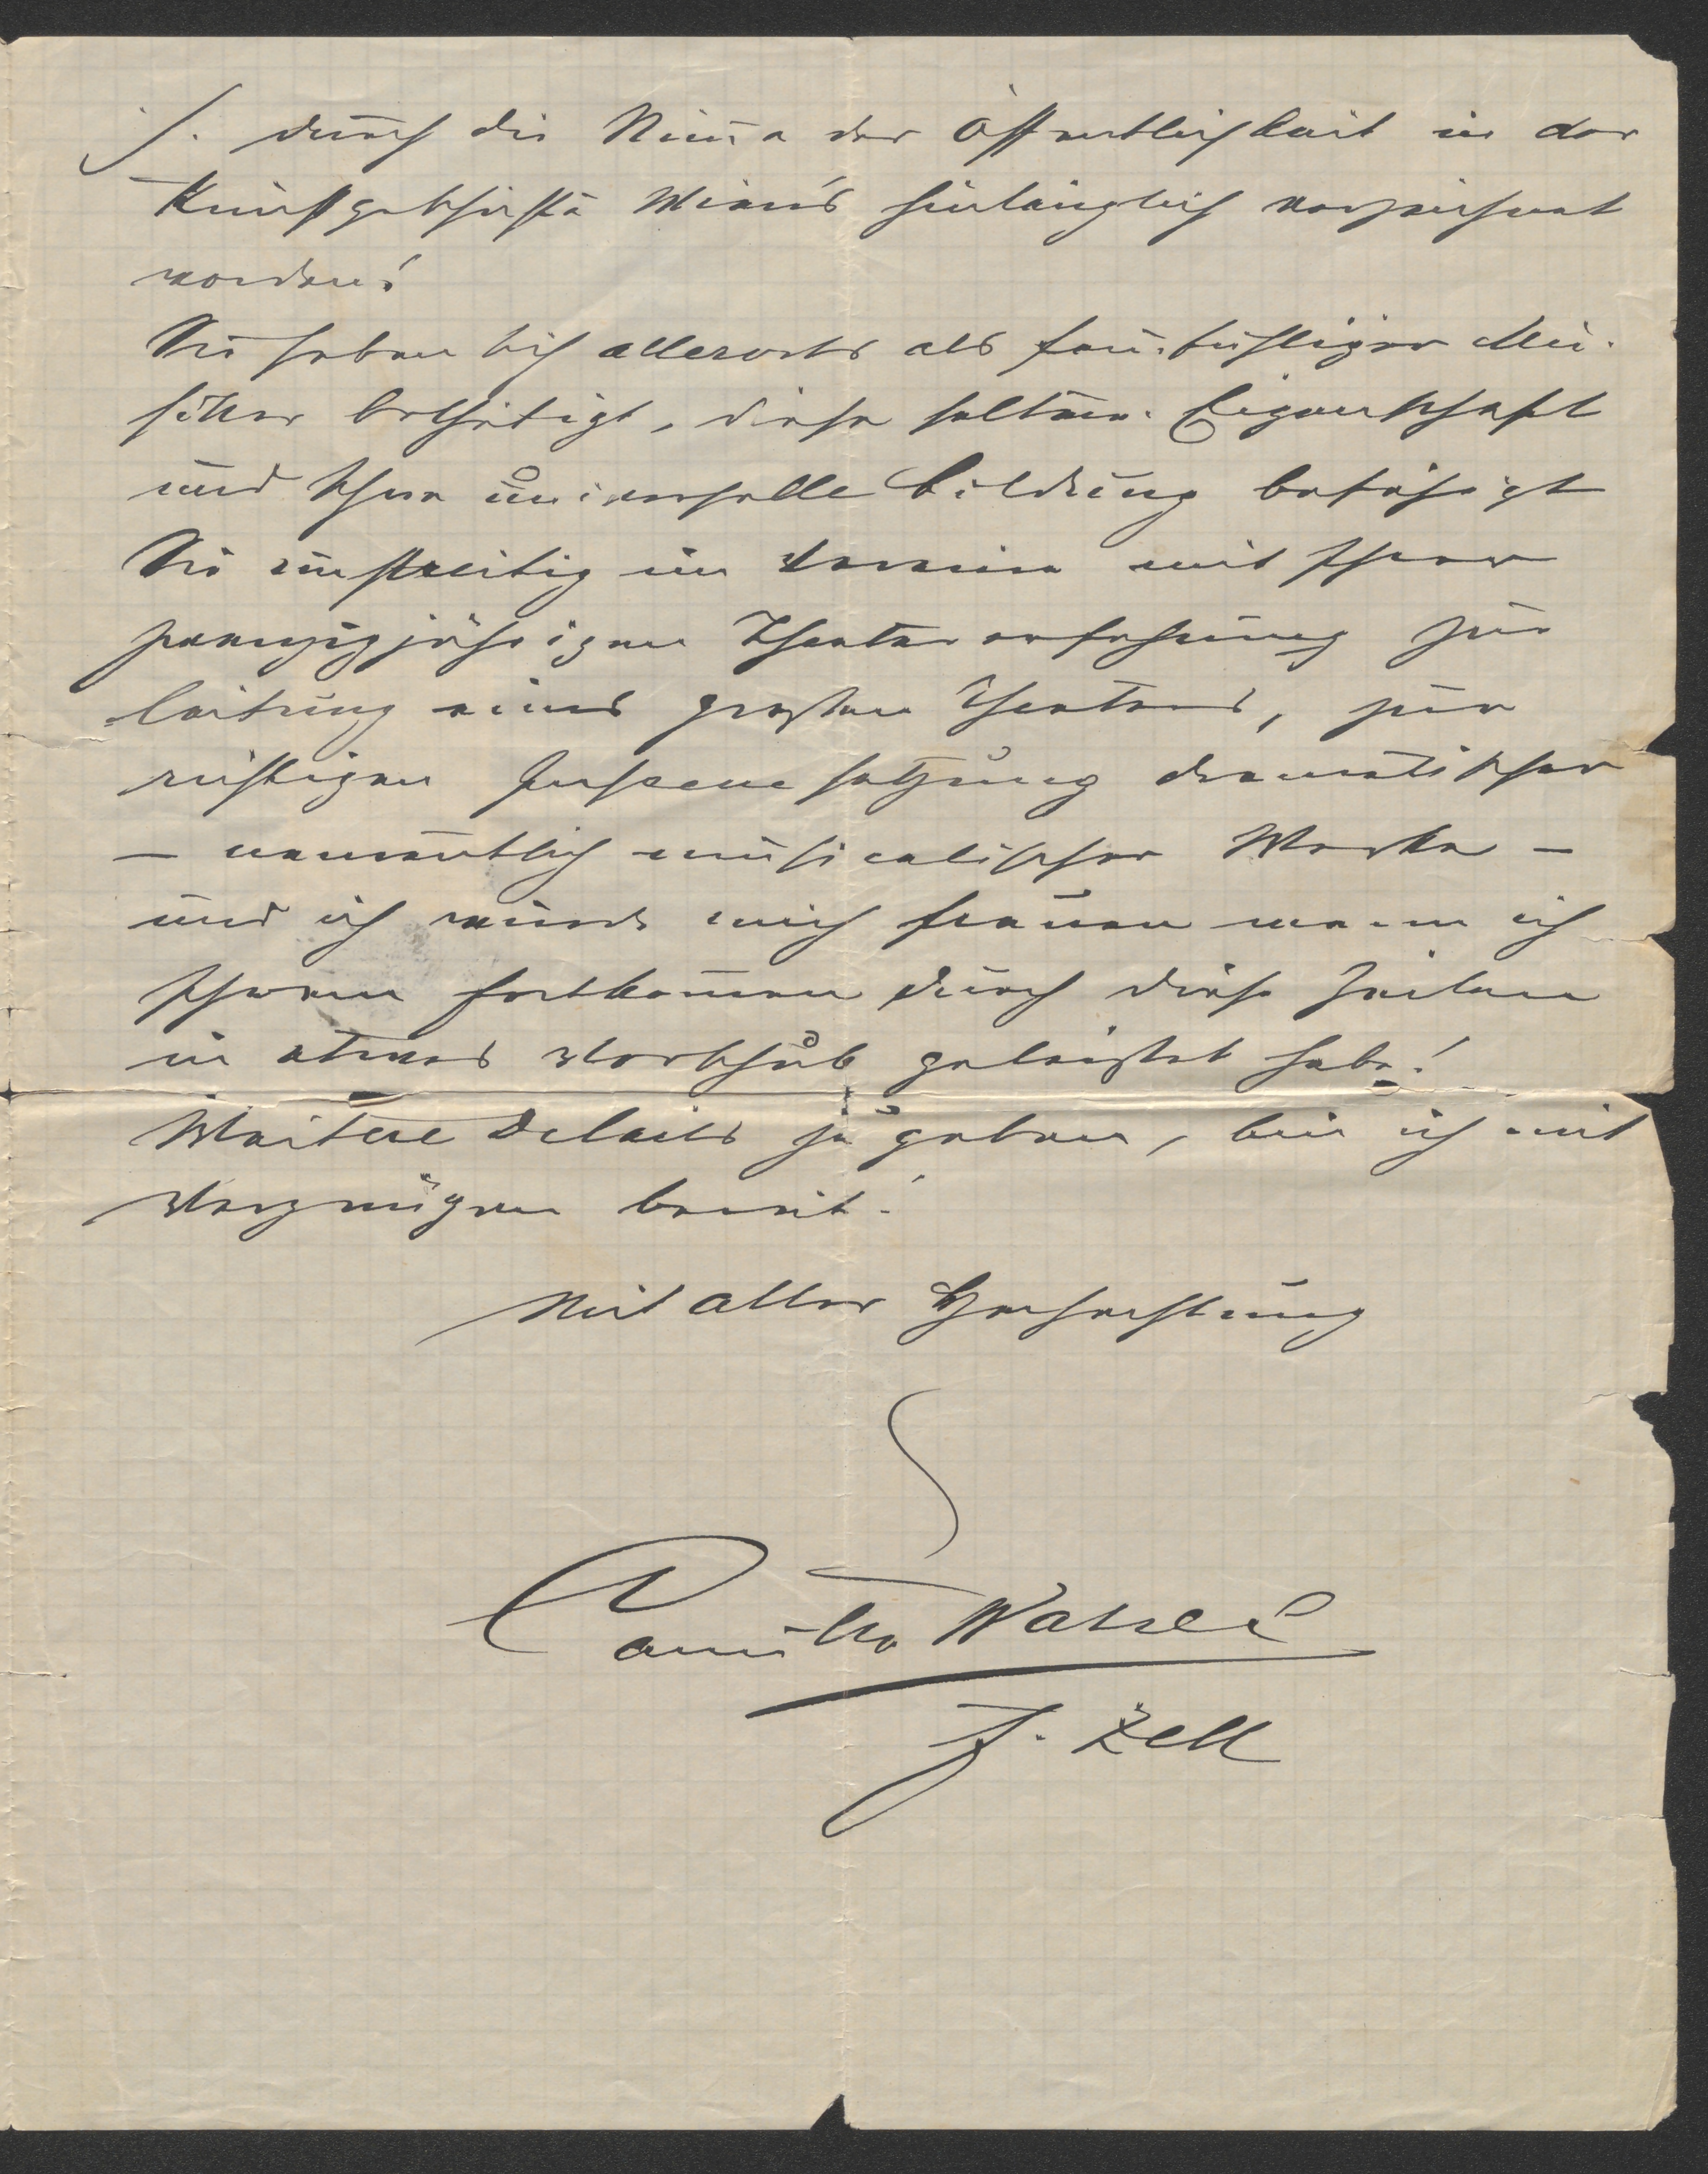 durch die Stimme der Öffentlichkeit in der
Kunstgeschichte Wien's hinlänglich verzeichnet
worden!
Sie haben sich allerorts als feinfühliger Mu-
siker bethätigt, diese seltene Eigenschaft
und Ihre universelle Bildung befähigt
Sie unstreitig im Vereine mit Ihrer
zwanzigjährigen Theatererfahrung zur
Leitung eines großen Theaters, zur
richtigen Inscenesetzung dramatischer
– namentlich musicalischer Werke –
und ich würde mich freuen wenn ich
Ihrem Fortkommen durch diese Zeilen
in etwas Vorschub geleistet habe!
Weitere Details zu geben, bin ich mit
Vergnügen bereit!
Mit aller Hochachtung
Camillo Walzel
F. Zell